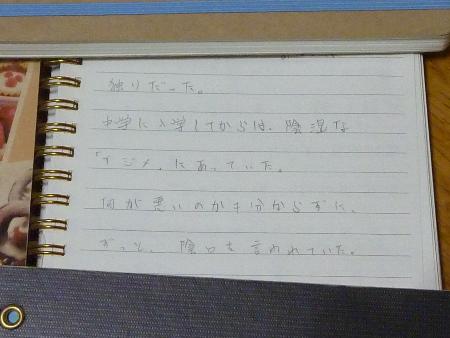 独りだった。
中学に入学してからは、陰湿な
「イジメ」にあっていた。
何が悪いのかも分からずに、
ずっと、陰口を言われていた。